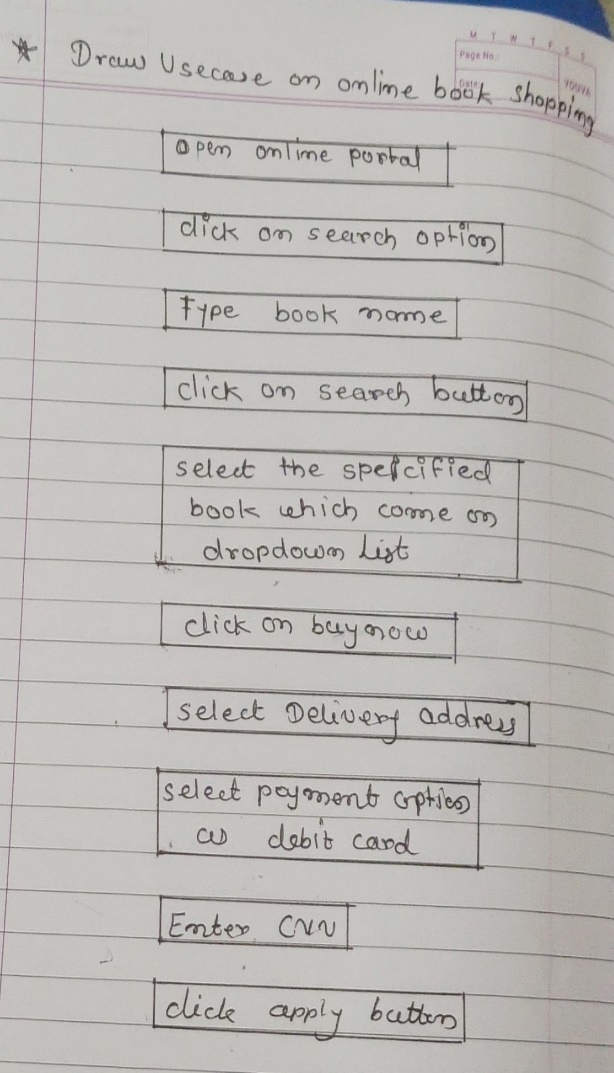 M T W T F S S
Page No.:
Date:
YOUVA
* Draw Usecase on online book shopping
open online portal
click on search option
Type book name
click on search button
select the specified
book which come on
dropdown list
click on buy now
select Delivery address
select payment option
as debit card
Enter CVV
click apply button